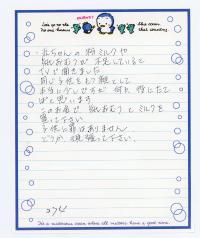 Let's go to the
No one knows
this ocean.
that country.
赤ちゃんの粉ミルクや
紙おむつが不足していると
TVで聞きました
同じ子供をもつ親として
本当に少しですが何か役にたて
ばと思います
このお金で紙おむつとミルクを
買って下さい
子供に罪はありません
どうか、頑張って下さい。